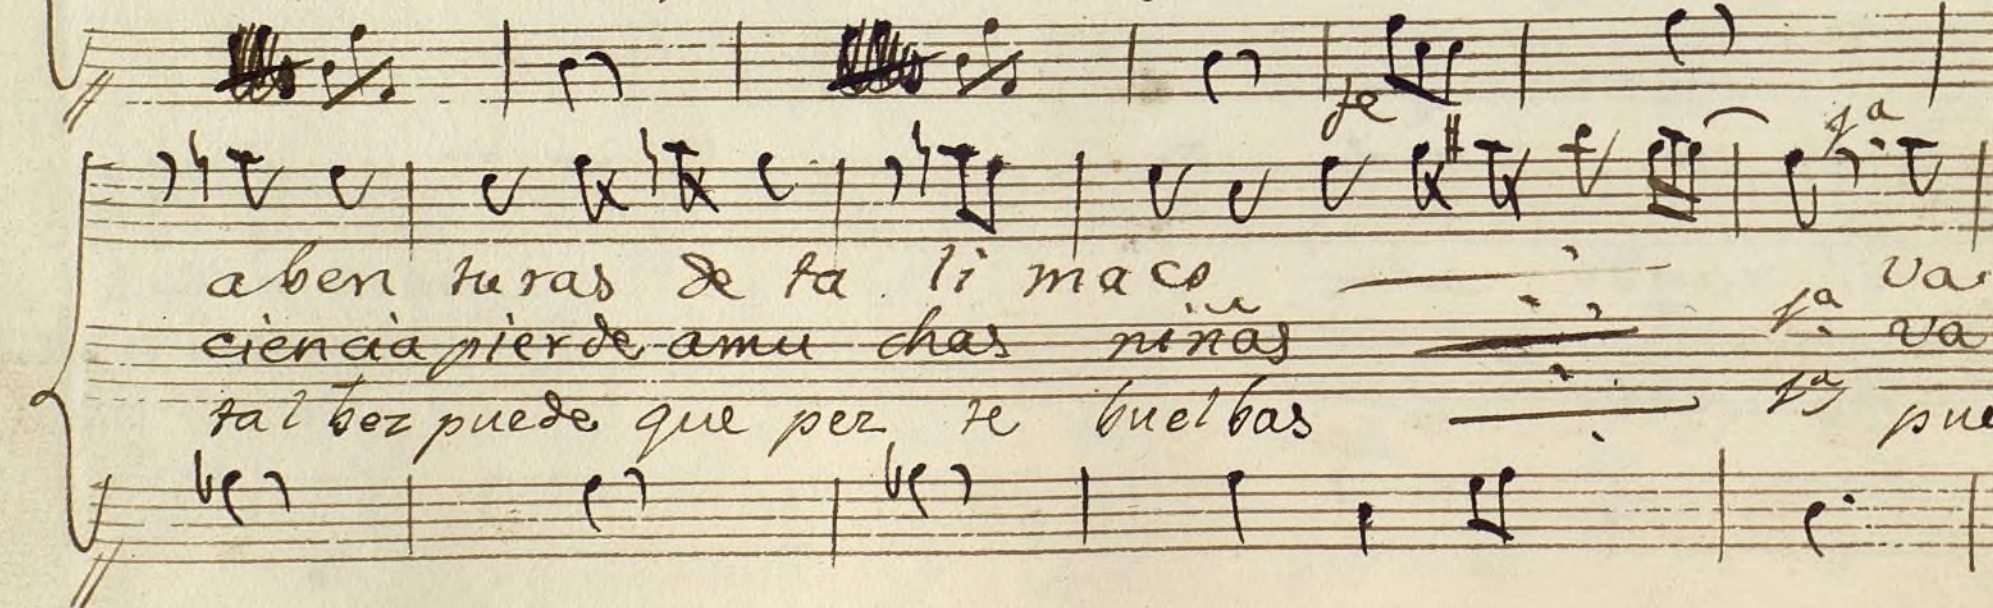 fe
fa
aben turas de ta li maco va
ciencia pierde amu chas niñas fa va
tal bez puede que per te buelbas fa pue